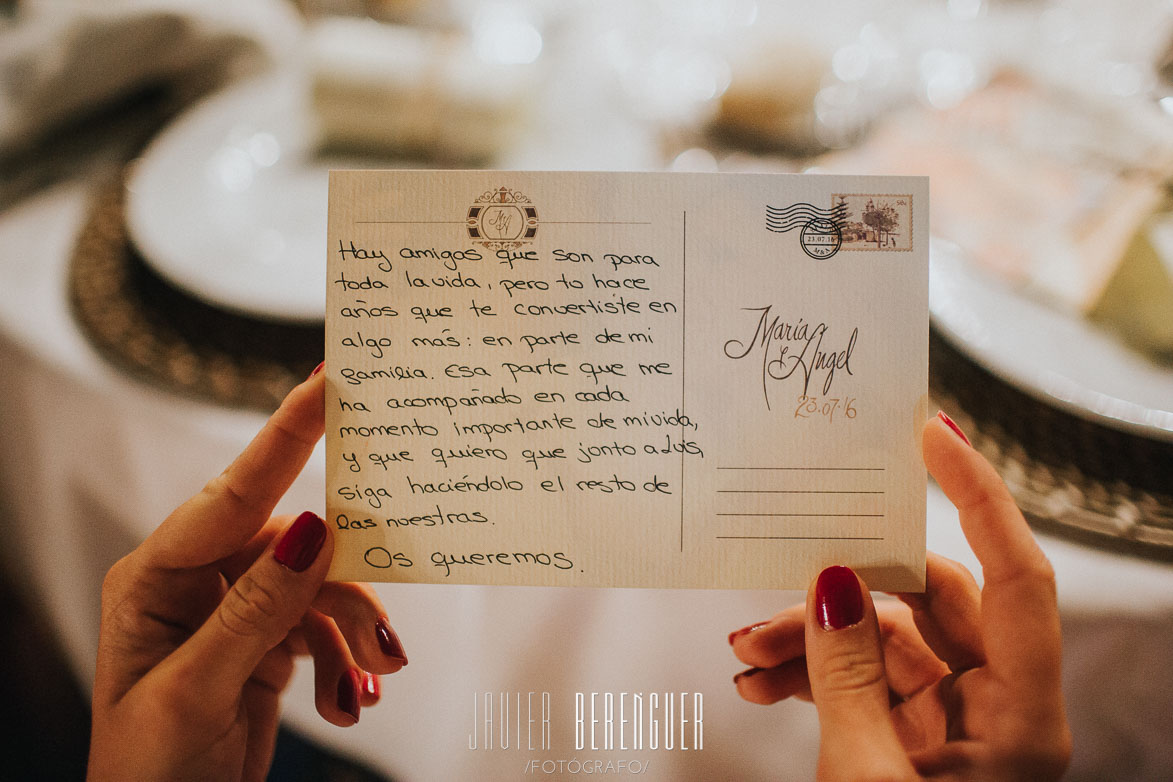 Hay amigos que son para
toda la vida, pero tu hace
años que te convertiste en
algo más: en parte de mi
familia. Esa parte que me
ha acompañado en cada
momento importante de mi vida,
y que quiero que junto a Luis,
siga haciéndolo el resto de
las nuestras.
Os queremos.
50c
23.07.16
María
& Angel
23.07.16
JAVIER BERENGUER
/FOTÓGRAFO/